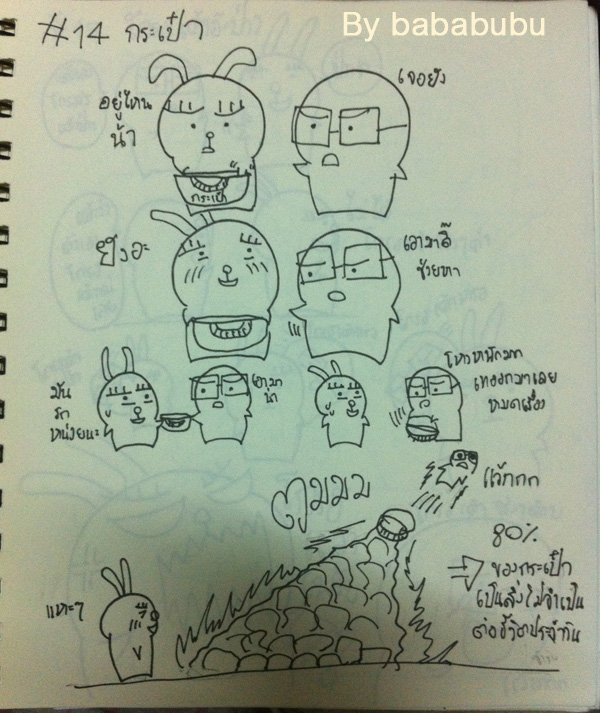 #14 กระเป๋า
By bababubu
อยู่ไหน
น้า
เจอยัง
กระเป๋า
ยังอะ
เอามาดิ๊
ช่วยหา
มัน
รก
หน่อยนะ
เอามา
น่า
โหวหนักมาก
เทออกมาเลย
หมดเรื่อง
ตูมมม
แว๊กกก
แหะๆ
80%
ของกระเป๋า
เป็นสิ่งไม่จำเป็น
ต่อชีวิตประจำวัน